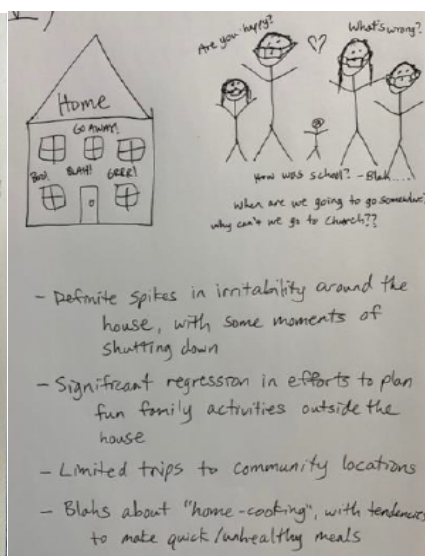 Are you happy?
What's wrong?
Home
GO AWAY!
Boo! BLAH! GRRR!
How was school? - Blah....
When are we going to go somewhere?
why can't we go to Church??
- Definite spikes in irritability around the
house, with some moments of
shutting down
- Significant regression in efforts to plan
fun family activities outside the
house
- Limited trips to community locations
- Blahs about "home-cooking", with tendencies
to make quick/unhealthy meals